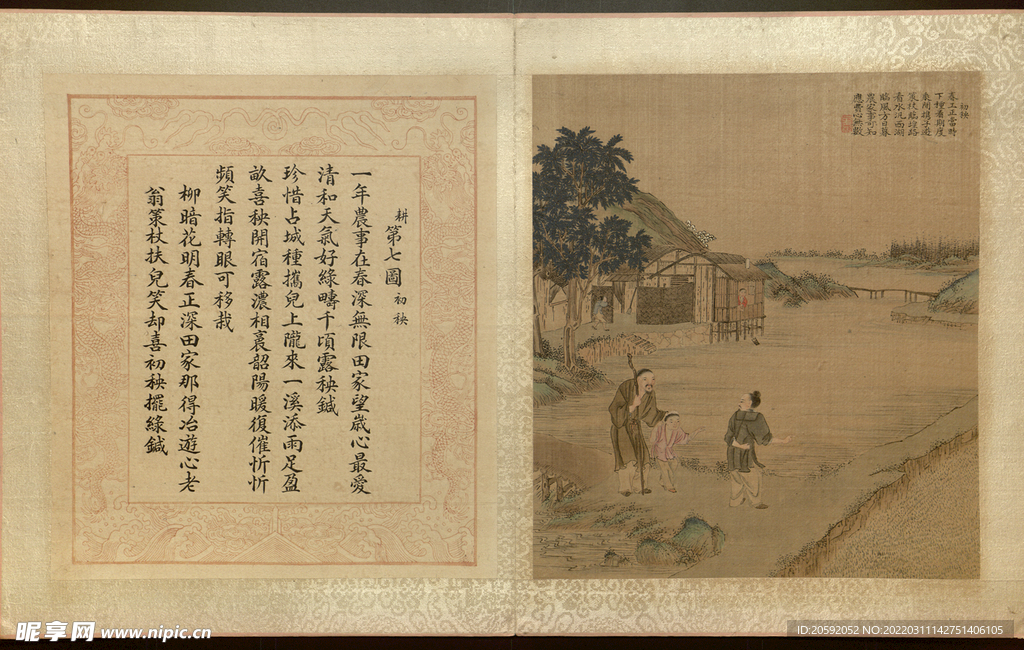 耕第七圖 初秧
一年農事在春深無限田家望歲心最愛
清和天氣好綠疇千頃露秧鍼
珍惜占城種攜兒上隴來一溪添雨足盈
畝喜秧開宿露濃相裛韶陽暖復催忻忻
頻笑指轉眼可移栽
柳暗花明春正深田家那得冶遊心老
翁策杖扶兒笑却喜初秧擺綠鍼
初秧
春工正當時
臨風方日暮
農家事可知
昵享网 www.nipic.cn
ID:20592052 NO:20220311142751406105